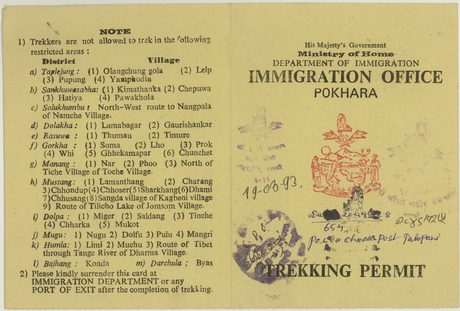 NOTE
1) Trekkers are not allowed to trek in the following
restricted areas :
District Village
a) Taplejung: (1) Olangchung gola (2) Lelp
(3) Pupung (4) Yamphudia
b) Sankhuwasabha: (1) Kimathanka (2) Chepuwa
(3) Hatiya (4) Pawakhola
c) Solukhumbu: North-West route to Nangpala
of Namche Village.
d) Dolakha: (1) Lamabagar (2) Gaurishankar
e) Rasuwa: (1) Thuman (2) Timure
f) Gorkha: (1) Soma (2) Lho (3) Prok
(4) Whi (5) Ghhekamapar (6) Chunchet
g) Manang: (1) Nar (2) Phoo (3) North of
Tiche Village of Toche Village.
h) Mustang: (1) Lamanthang (2) Charang
3)Chhondup(4)Chhoser(5)Sharkhang(6)Dhami
7)Chhusang(8)Sangda village of Kagheni village
9) Route of Tilicho Lake of Jomsom Village.
i) Dolpa: (1) Miger (2) Saldang (3) Tinche
(4) Chharka (5) Mukot
j) Mugu: 1) Nugu 2) Dolfu 3) Pulu 4) Mangri
k) Humla: 1) Limi 2) Muchu 3) Route of Tibet
through Tange River of Dharma Village.
l) Bajhang: Konda m) Darchula: Byas
2) Please kindly surrender this card at
IMMIGRATION DEPARTMENT or any
PORT OF EXIT after the completion of trekking.
His Majesty's Government
Ministry of Home
DEPARTMENT OF IMMIGRATION
IMMIGRATION OFFICE
POKHARA
19-03-93.
TREKKING PERMIT